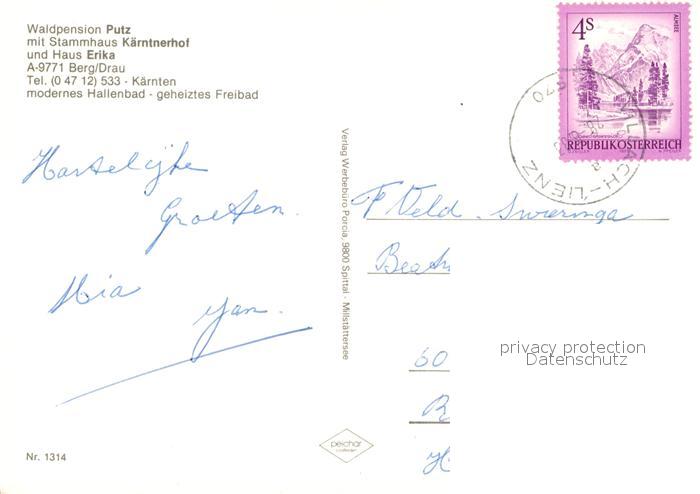 Waldpension Putz
mit Stammhaus Kärntnerhof
und Haus Erika
A-9771 Berg/Drau
Tel. (0 47 12) 533 - Kärnten
modernes Hallenbad - geheiztes Freibad
4S
ALMSEE
REPUBLIK ÖSTERREICH
VILLACH-LIENZ
Hartelijke
Groeten.
Mia
Jan.
Verlag Werbebüro Porcia, 9800 Spittal - Millstättersee
F Veld. Swieringa
Beat
60
R
H
privacy protection
Datenschutz
peichar
Nr. 1314